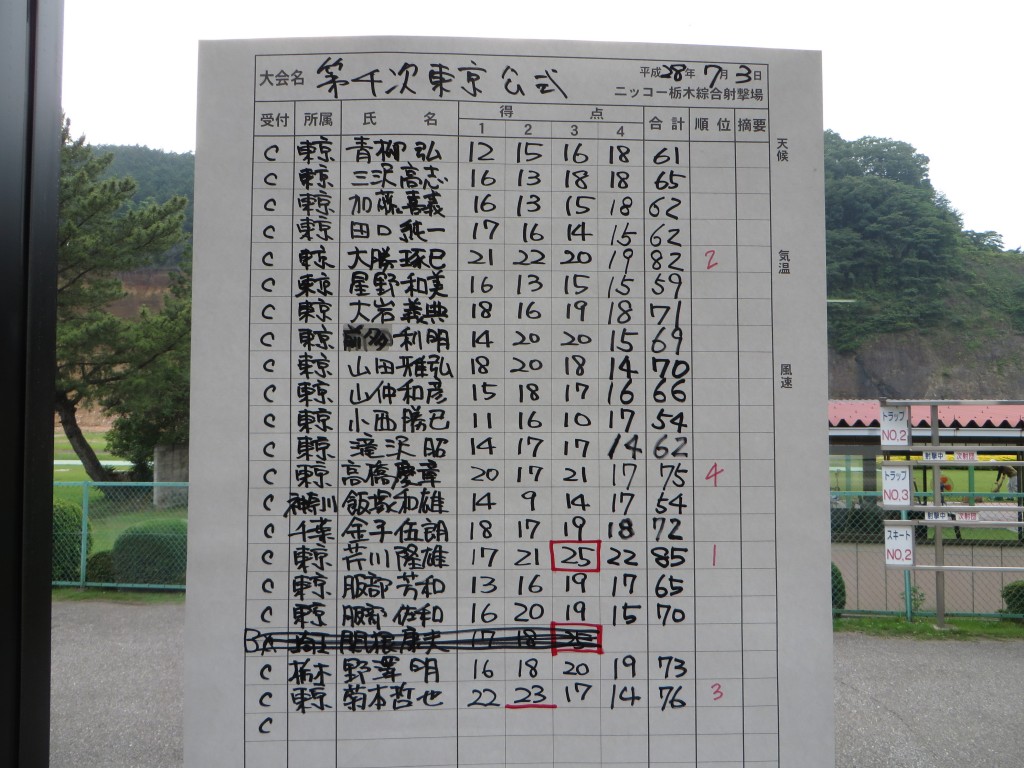 大会名 第4次東京公式 平成28年7月3日
ニッコー栃木綜合射撃場
受付 所属 氏名 得点 合計 順位 摘要
1 2 3 4
C 東京 青柳弘 12 15 16 18 61
C 東京 三沢高志 16 13 18 18 65
C 東京 加藤喜義 16 13 15 18 62
C 東京 田口純一 17 16 14 15 62
C 東京 大勝琢巳 21 22 20 19 82 2
C 東京 星野和美 16 13 15 15 59
C 東京 大岩義典 18 16 19 18 71
C 東京 利明 14 20 20 15 69
C 東京 山田雅弘 18 20 18 14 70
C 東京 山仲和彦 15 18 17 16 66
C 東京 小西勝巳 11 16 10 17 54
C 東京 滝沢昭 14 17 17 14 62
C 東京 高橋慶章 20 17 21 17 75 4
C 神奈川 飯塚和雄 14 9 14 17 54
C 千葉 金子伍朗 18 17 19 18 72
C 東京 芹川隆雄 17 21 25 22 85 1
C 東京 服部芳和 13 16 19 17 65
C 東京 服部佐和 16 20 19 15 70
BA 埼玉 関根康夫 17 18 25
C 栃木 野澤明 16 18 20 19 73
C 東京 菊本哲也 22 23 17 14 76 3
C
天候
気温
風速
トラップ
NO,2
射撃中 次射団
トラップ
NO,3
射撃中 次射団
スキート
NO.2